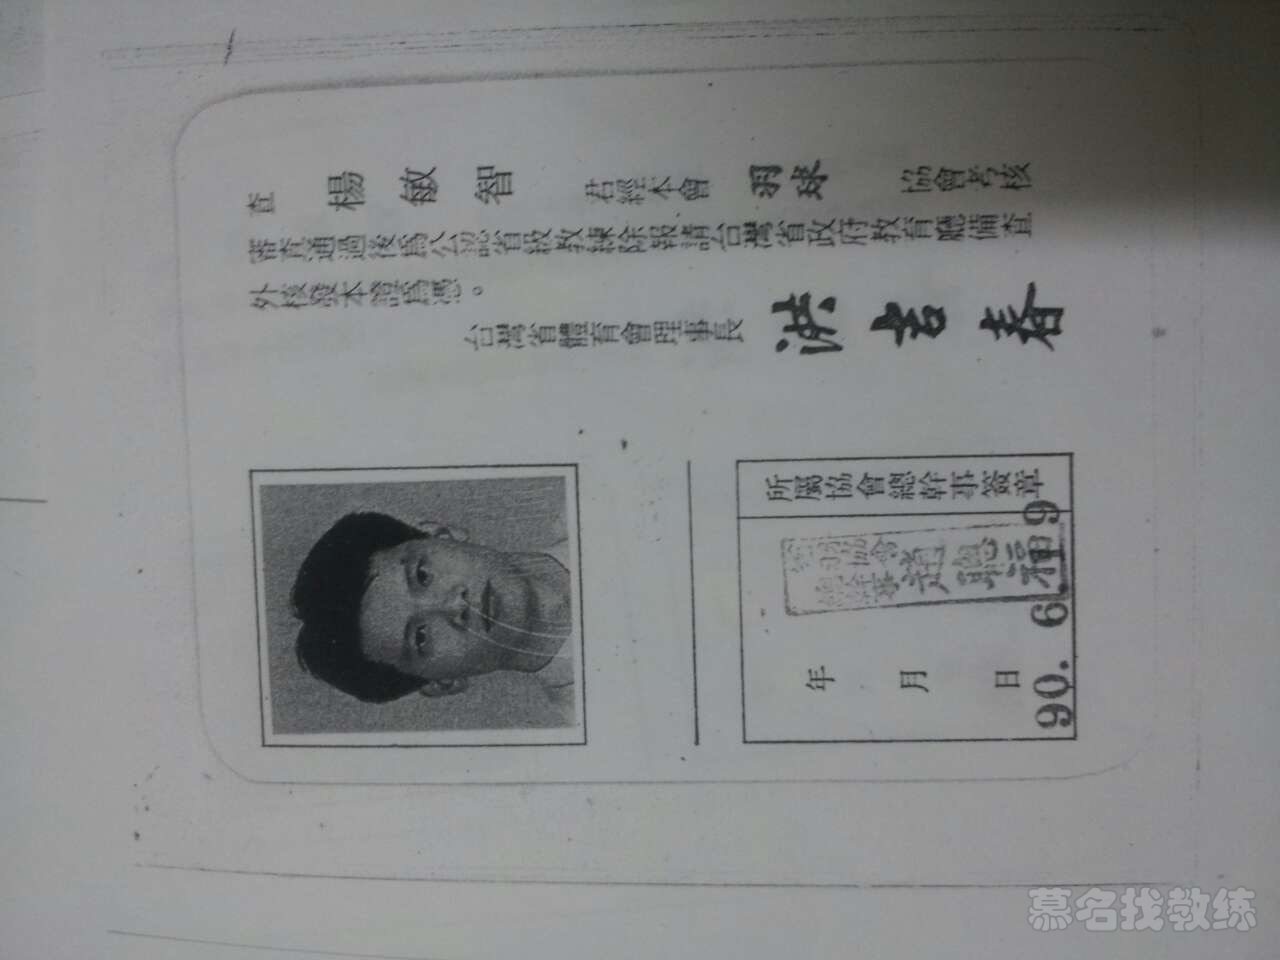 查 楊敏智 君經本會 羽球 協會考核
審查通過後為公認省級教練除報請台灣省政府教育廳備查
外核發本證為憑。
台灣省體育會理事長 洪吉春
所屬協會總幹事簽章
年 月 日
90. 6. 9
慕名找教练